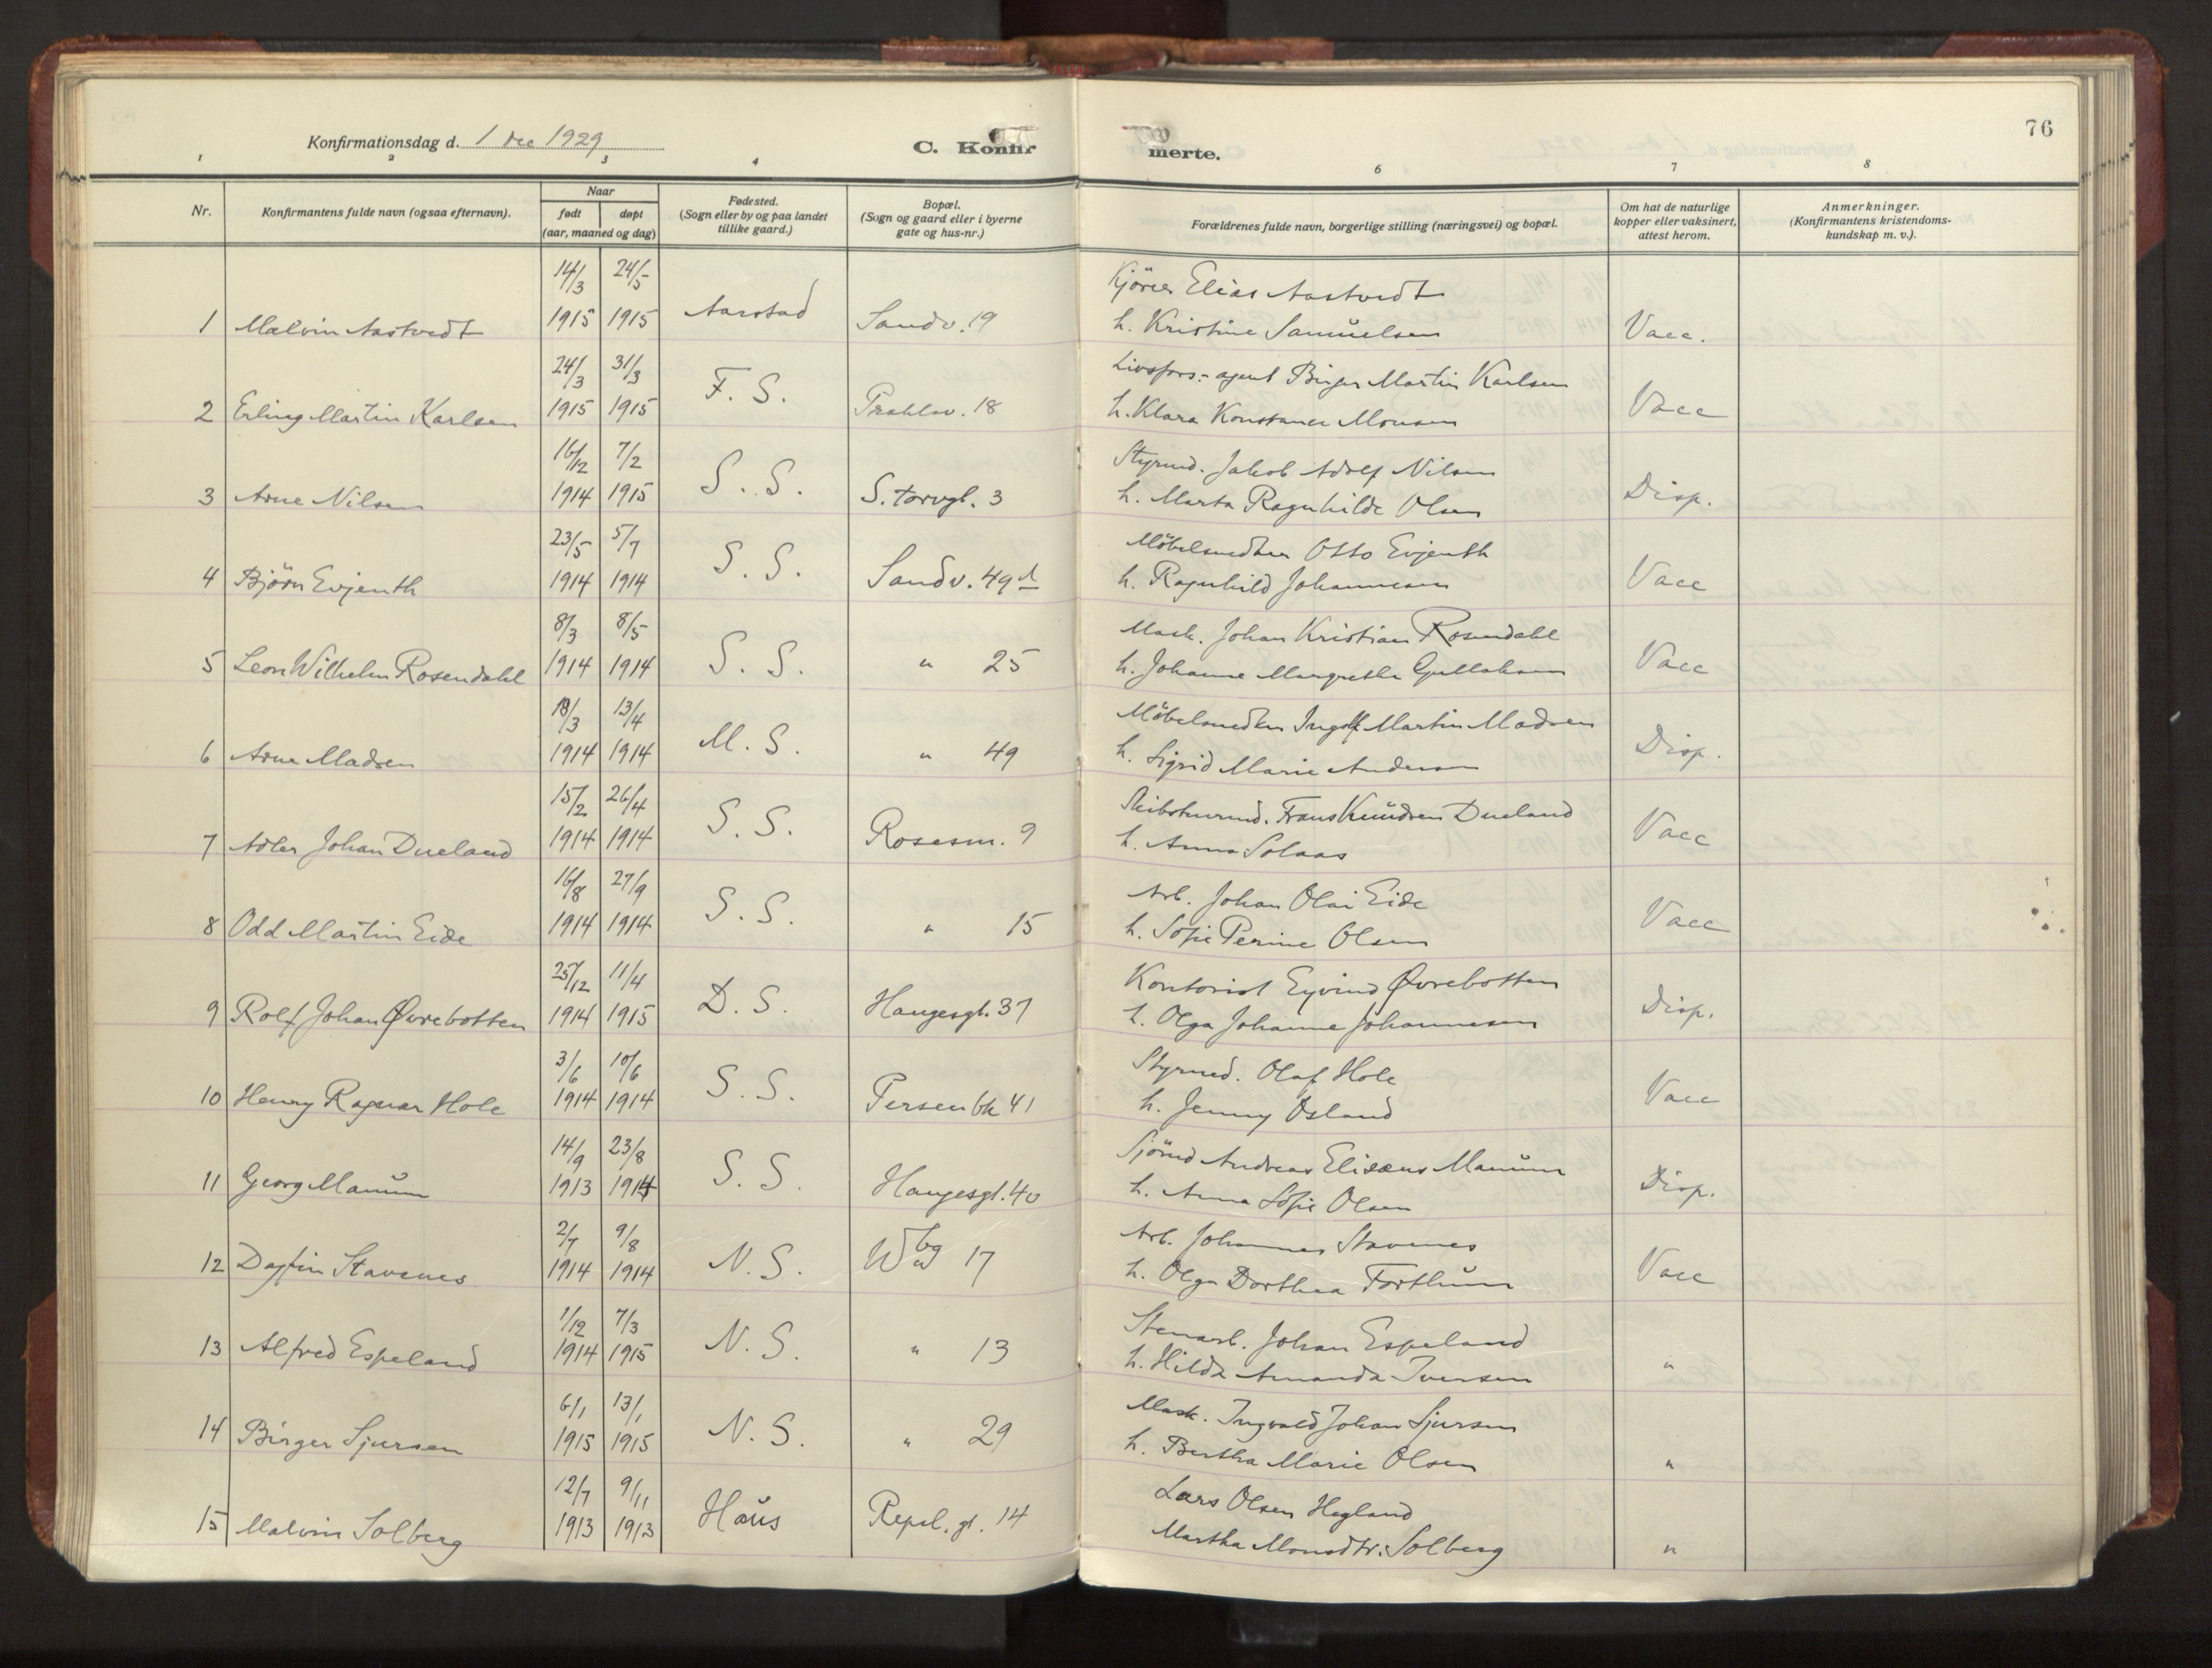 76
Konfirmationsdag d. 1 dec 1929
C. Konfirmerte.
1 2 3 4 6 7 8
Nr.
Konfirmantens fulde navn (ogsaa efternavn).
Naar
født døpt
(aar, maaned og dag)
Fødested.
(Sogn eller by og paa landet
tillike gaard.)
Bopæl.
(Sogn og gaard eller i byerne
gate og hus-nr.)
Forældrenes fulde navn, borgerlige stilling (næringsvei) og bopæl.
Om hat de naturlige
kopper eller vaksinert,
attest herom.
Anmerkninger.
(Konfirmantens kristendoms-
kundskap m. v.).
14/3 24/5 Kjörer Elias Aastvedt
1 Malvin Aastvedt 1915 1915 Aarstad Sandv. 19 h. Kristine Samuelsen Vacc.
24/3 31/3 Livsfors.-agent Birger Martin Karlsen
2 Erling Martin Karlsen 1915 1915 F. S. Prahlsv. 18 h. Klara Konstance Monsen Vacc
16/12 7/2 Styrmd. Jakob Adolf Nilsen
3 Arne Nilsen 1914 1915 S. S. S. torvgt. 3 h. Marta Ragnhilde Olsen Disp.
23/5 5/7 Möbelsnedker Otto Evjenth
4 Björn Evjenth 1914 1914 S. S. Sandv. 49 d h. Ragnhild Johannesen Vacc
8/3 8/5 Mask. Johan Kristian Rosendahl
5 Leon Wilhelm Rosendahl 1914 1914 S. S. " 25 h. Johanne Margrethe Gullaksen Vacc
18/3 13/4 Möbelsnedker Ingolf Martin Madsen
6 Arne Madsen 1914 1914 M. S. " 49 h. Sigrid Marie Andersen Disp.
15/2 26/4 Skibsturmd. Frans Knudsen Dueland
7 Adler Johan Dueland 1914 1914 S. S. Rosesm. 9 h. Anna Solaas Vacc
16/8 27/9 Arb. Johan Olai Eide
8 Odd Martin Eide 1914 1914 S. S. " 15 h. Sofie Perine Olsen Vacc
25/12 11/4 Kontorist Eyvind Øvrebotten
9 Rolf Johan Øvrebotten 1914 1915 D. S. Haugesgt. 37 h. Olga Johanne Johannesen Disp.
3/6 10/6 Styrmd. Olaf Hole
10 Henry Ragnar Hole 1914 1914 S. S. Persenbk 41 h. Jenny Osland Vacc
14/9 23/8 Sjömd Andreas Elisæus Manum
11 Georg Manum 1913 1914 S. S. Haugesgt. 40 h. Anna Sofie Olsen Disp.
2/7 9/8 Arb. Johannes Stavenes
12 Dagfin Stavenes 1914 1914 N. S. 17 h. Olga Dorthea Forthun Vacc
1/12 7/3 Stenarb. Johan Espeland
13 Alfred Espeland 1914 1915 N. S. " 13 h. Hilda Amanda Iversen "
6/1 13/1 Mask. Ingvald Johan Sjursen
14 Birger Sjursen 1915 1915 N. S. " 29 h. Bertha Marie Olsen "
12/7 9/11 Lars Olsen Hegland
15 Malvin Solberg 1913 1913 Haus Repsl. gt. 14 Martha Monsdtr. Solberg "